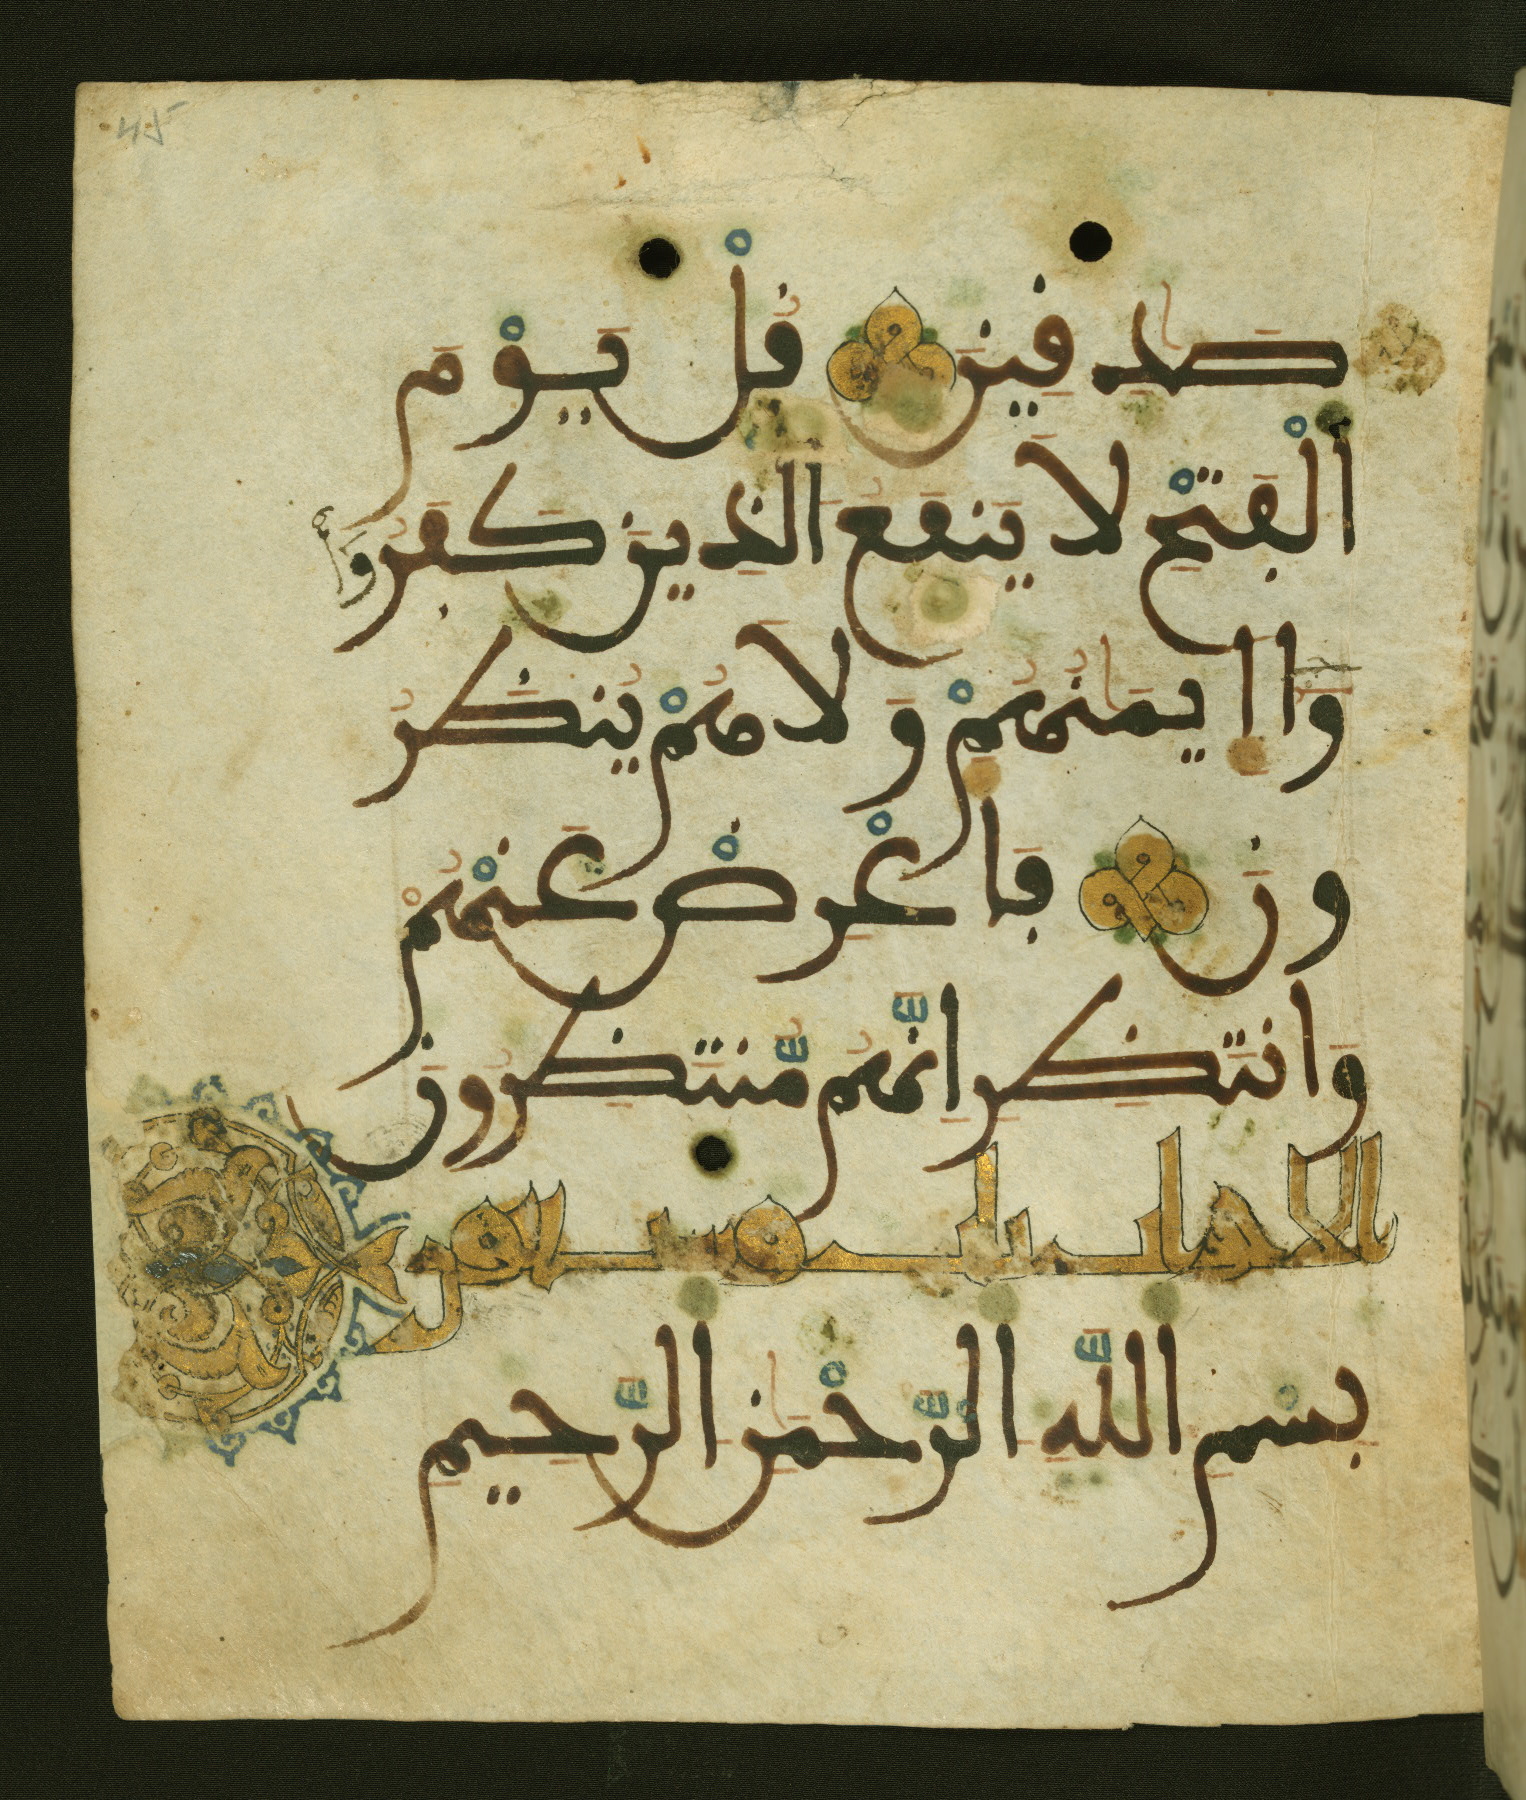 45
صَٰدِقِينَ قُلْ يَوْمَ
الْفَتْحِ لَا يَنفَعُ الذِينَ كَفَرُوا
وَا ايمَٰنُهُمْ وَلَا هُمْ يُنظَرُ
ونَ فَاعْرِضْ عَنْهُمْ
وَانتَظِرِ انَّهُم مُّنتَظِرُونَ
الاحزاب ثلث وسبعون
بِسْمِ اللَّهِ الرَّحْمَٰنِ الرَّحِيمِ